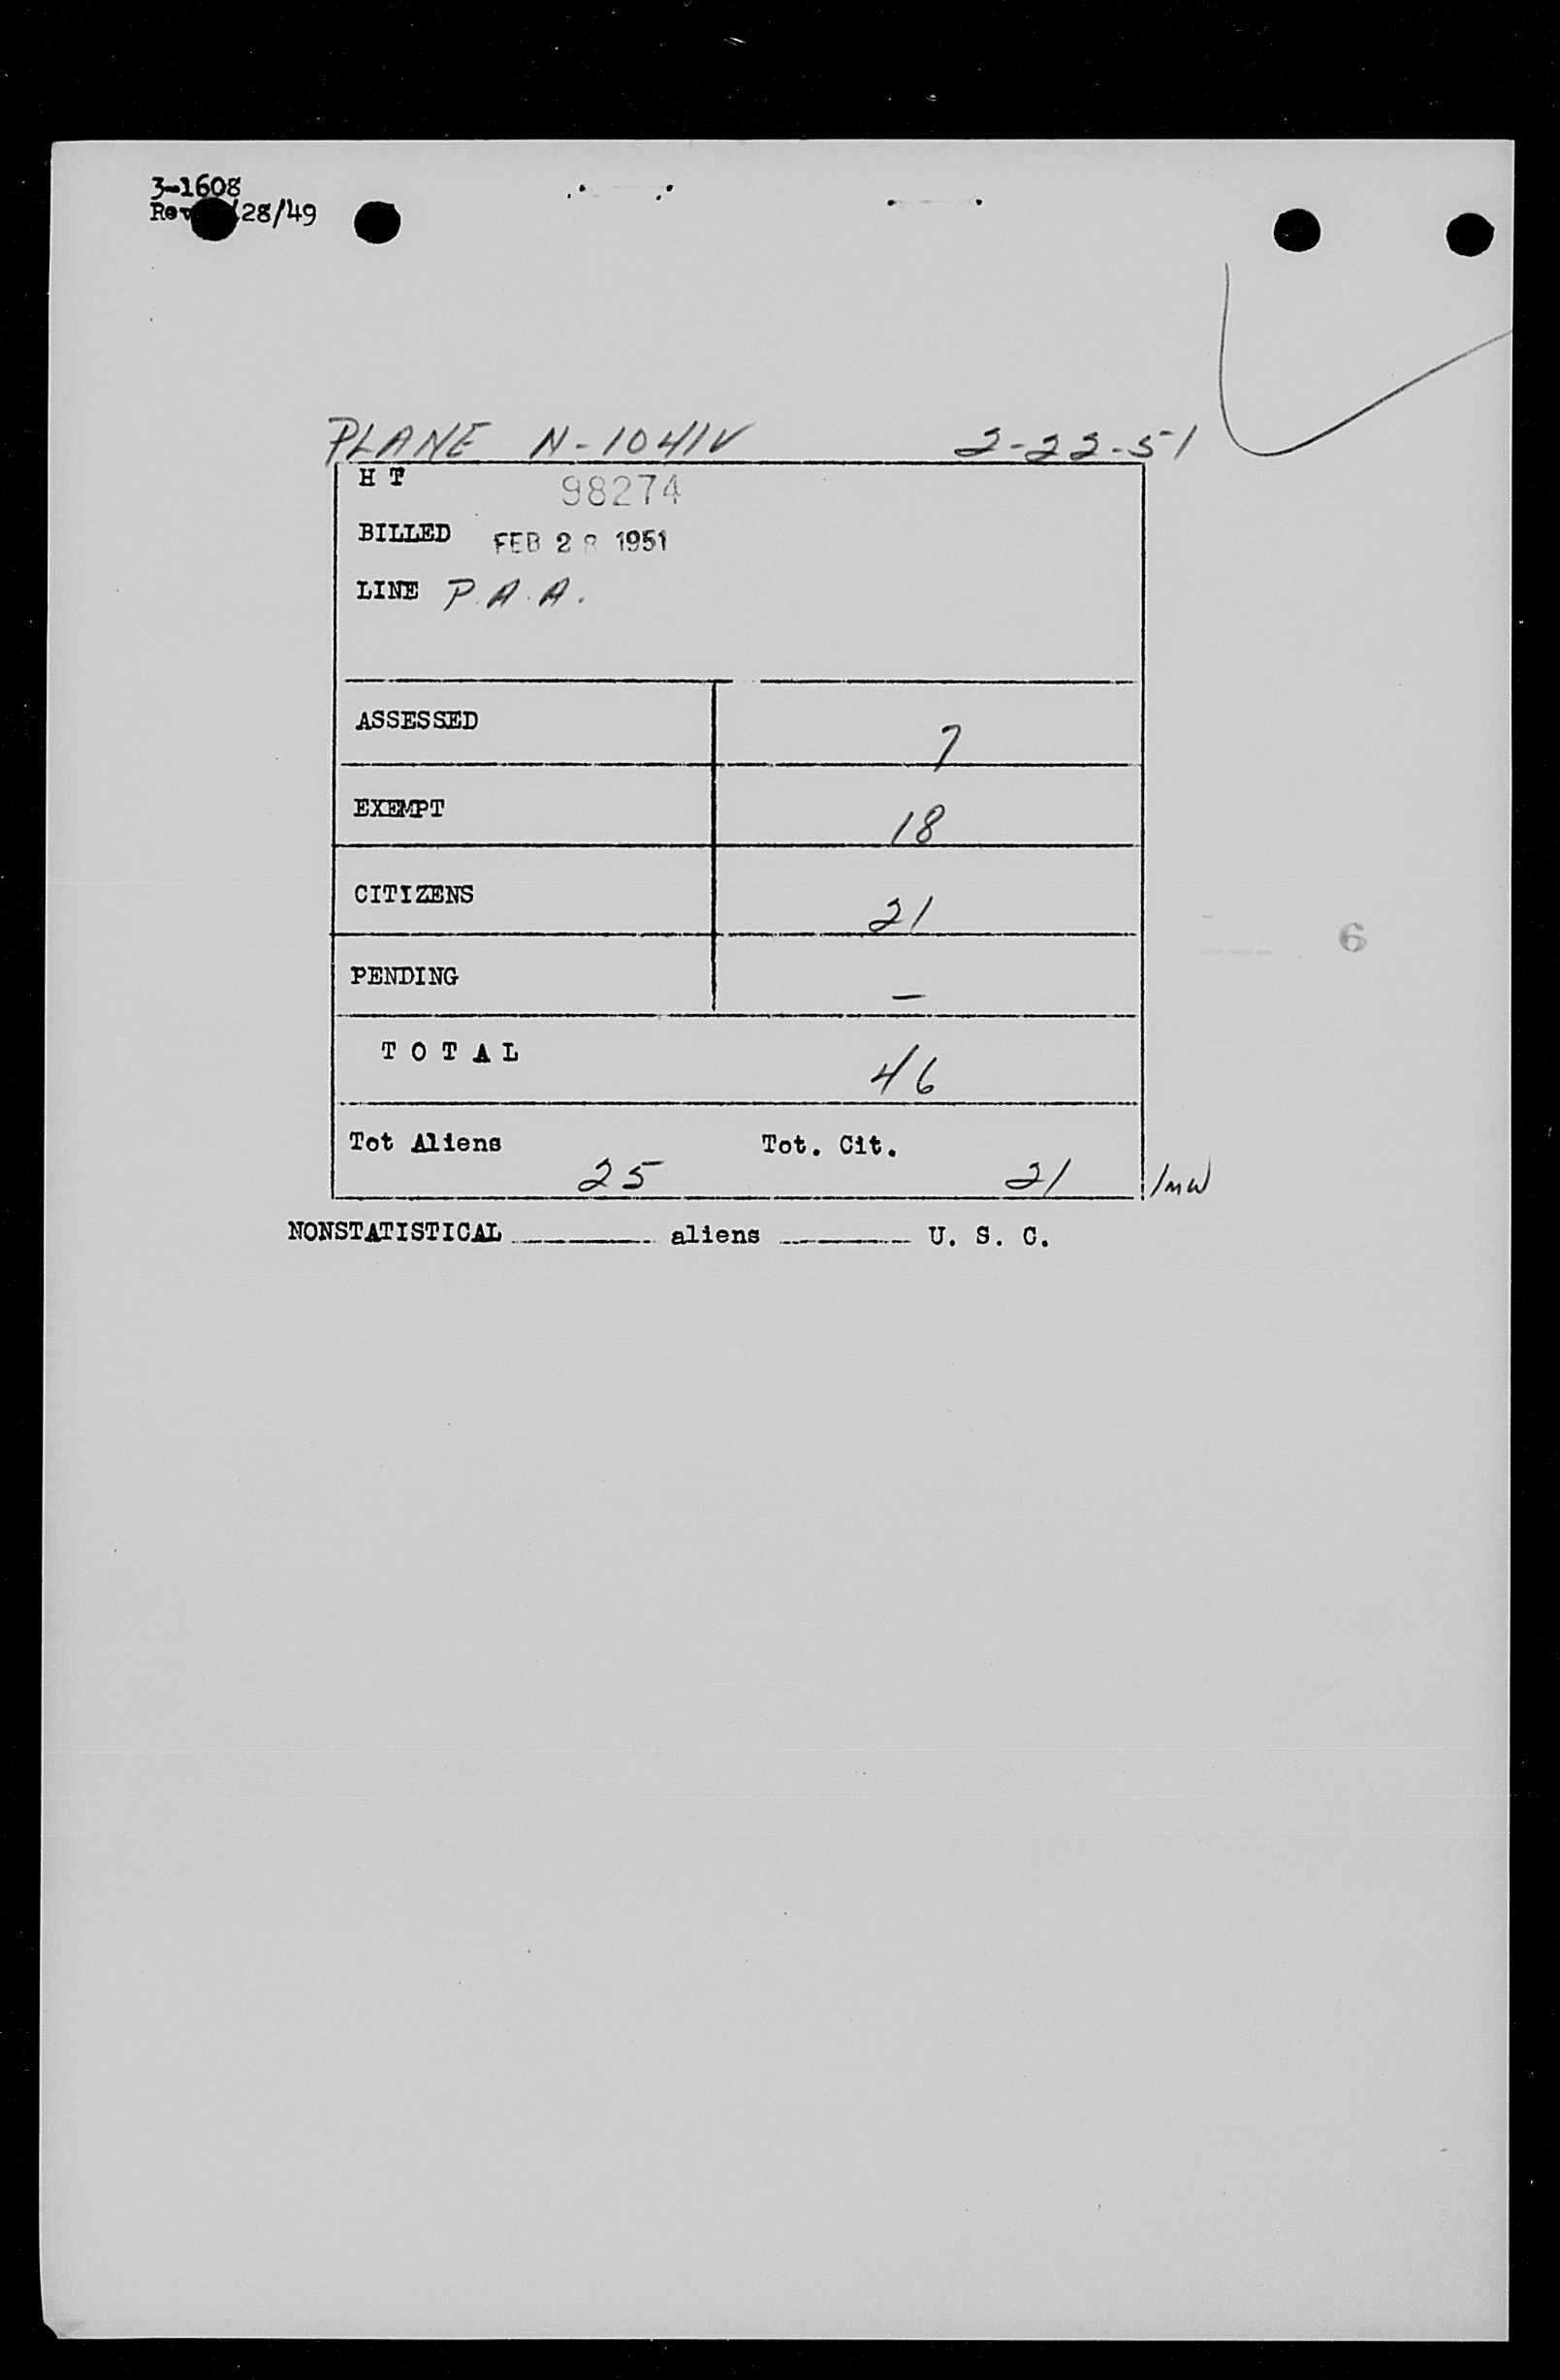 3-1608
Rev /28/49
PLANE N-1041V 2-22-51
H T 98274
BILLED FEB 28 1951
LINE P.A.A.
ASSESSED 7
EXEMPT 18
CITIZENS 21
PENDING -
TOTAL 46
Tot Aliens 25 Tot. Cit. 21 /mw
NONSTATISTICAL ______ aliens ______ U. S. C.
6